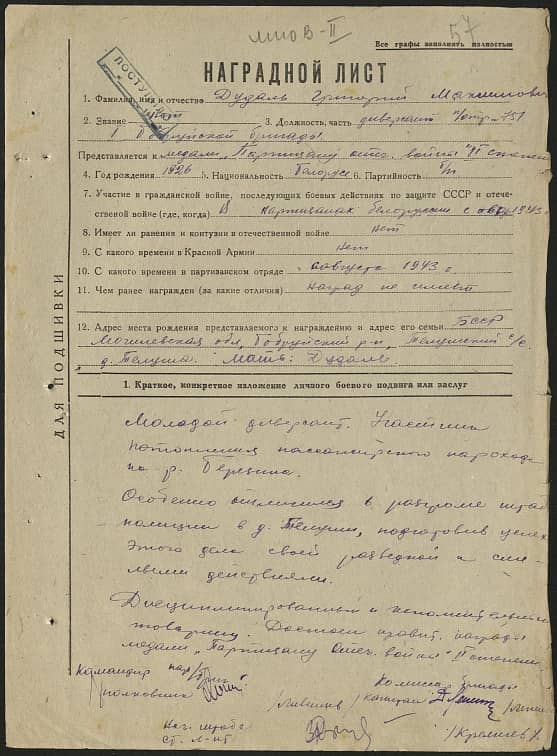 57
Все графы заполнять полностью
НАГРАДНОЙ ЛИСТ
1. Фамилия, имя и отчество Дудаль Григорий Максимович
2. Звание 3. Должность, часть диверсант 751
1 Бобруйской бригады
Представляется к медали "Партизану отеч. войны" II степени
4. Год рождения 1926 5. Национальность белорус 6. Партийность б/п
7. Участие в гражданской войне, последующих боевых действиях по защите СССР и отече-
ственой войне (где, когда) В партизанах Белоруссии с 1943
8. Имеет ли ранения и контузии в отечественной войне нет
9. С какого времени в Красной Армии нет
10. С какого времени в партизанском отряде с августа 1943 г.
11. Чем ранее награжден (за какие отличия) наград не имеет
12. Адрес места рождения представляемого к награждению и адрес его семьи БССР
Могилевская обл, Бобруйский р-н, Телушский с/с.
д. Телуша. Мать: Дудаль
ДЛЯ ПОДШИВКИ
1. Краткое, конкретное изложение личного боевого подвига или заслуг
Молодой диверсант. Участник
потопления пассажирского парохода
на р. Березина.
Особенно отличился в разгроме
полиции в д. Телуши, подготовив успех
этого дела своей разведкой и сме-
лыми действиями.
Дисциплинированный и исполнительный
товарищ. Достоин правит. награды
медали "Партизану Отеч. войны" II степени
Командир Комиссар бригады
полковник /Ливенцев/ капитан
Нач. штаба
ст. л-нт